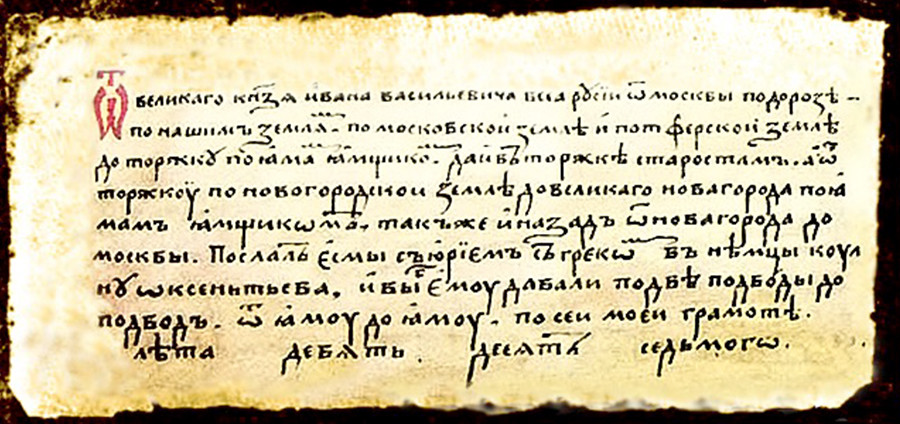 Ѿ великаго кн҃зѧ и҆вана васильевича всеа рꙋсїи ѿ москвы по дорозѣ
по нашимъ землѧⷨ. по московской землѣ и҆ по тферской землѣ
до торжкꙋ по ꙗ҆маⷨ ꙗ҆мщикоⷨ. да и҆ въ торжкѣ старостамъ. а҆ ѿ
торжкоу по новогородской землѣ до великаго новагорода по ꙗ҆
мамъ ꙗ҆мщикѡмъ. такъже и҆ назадъ ѿ новагорода до
москвы. Послалъ є҆смы съ ю҆рїемъ съ грекѡⷨ въ нѣмцы коул
нꙋ ѡксеньтьева, и҆ вы є҆моу давали по двѣ подводы до
подводъ. ѿ ꙗ҆моу до ꙗ҆моу. по сеи моеи грамотѣ.
лѣта девѧть десѧтъ седьмогѡ.